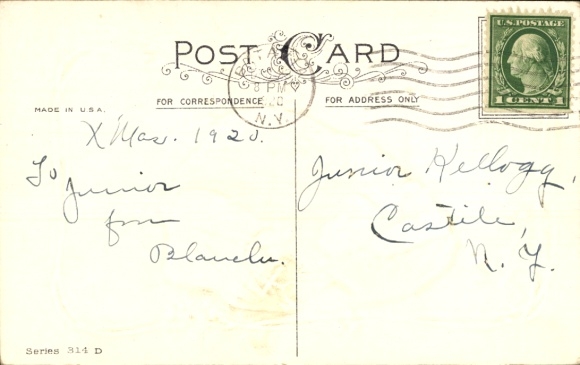 POST CARD
U.S. POSTAGE
1 CENT 1
8 PM
N.Y.
FOR CORRESPONDENCE
FOR ADDRESS ONLY
MADE IN U.S.A.
X'Mas. 1920.
To Junior
from
Blanche.
Junior Kellogg,
Castile,
N. Y.
Series 314 D